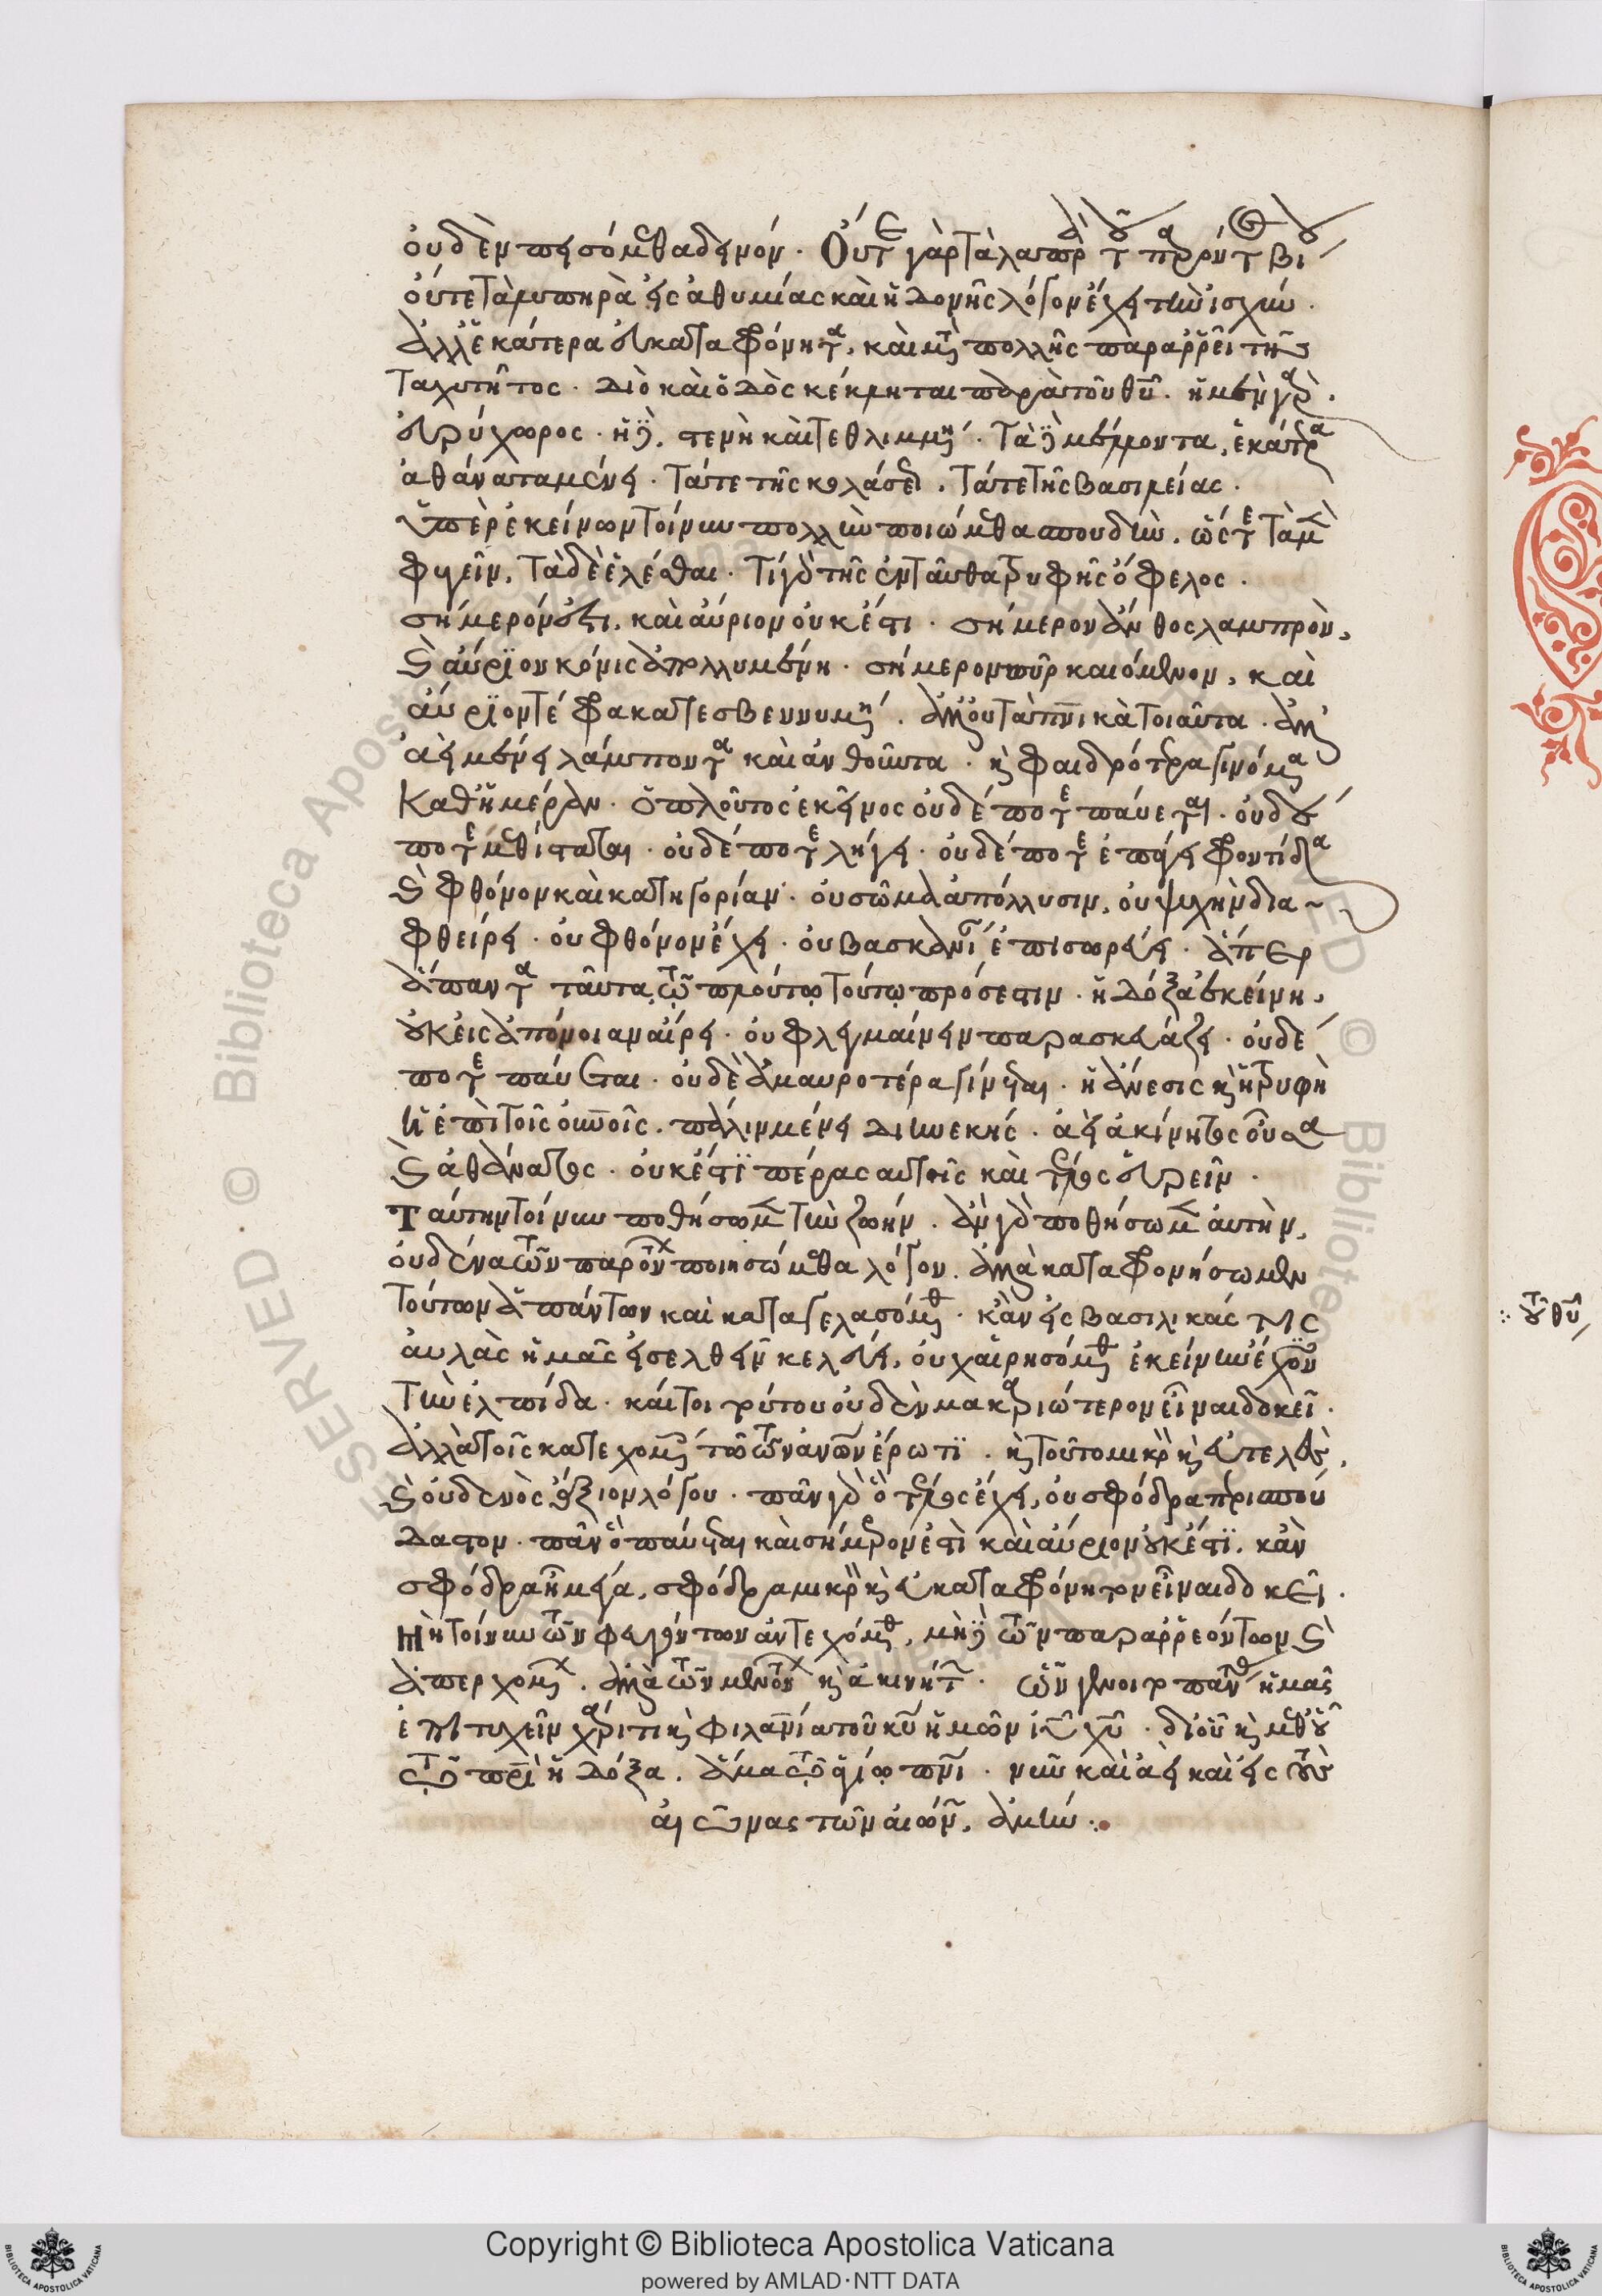 οὐδὲν πεισόμεθα δεινόν. Οὔτε γὰρ τὰ λαμπρὰ τοῦ παρόντος βίου
οὔτε τὰ λυπηρὰ εἰς ἀθυμίας καὶ ἡδονῆς λόγον ἔχει τὴν ἰσχύν.
ἀλλ' ἑκάτερα εὐκαταφρόνητα, καὶ μετὰ πολλῆς παραρρεῖ τῆς
ταχυτῆτος. διὸ καὶ ὁδὸς κέκληται παρὰ τοῦ θυ. ἡ μὲν γὰρ
εὐρύχωρος. ἡ δὲ, στενὴ καὶ τεθλιμμένη. τὰ δὲ μέλλοντα, ἑκάτερα
ἀθάνατα μένει. τά τε τῆς κολάσεως. τά τε τῆς βασιλείας.
ὑπὲρ ἐκείνων τοίνυν πολλὴν ποιώμεθα σπουδὴν. ὥστε τὰ μὲν
φυγεῖν, τὰ δὲ ἑλέσθαι. τί γὰρ τῆς ἐνταῦθα τρυφῆς ὄφελος.
σήμερόν ἐστι, καὶ αὔριον οὐκ ἔστι. σήμερον ἄνθος λαμπρὸν,
καὶ αὔριον κόνις ἀπολλυμένη. σήμερον πῦρ καιόμενον, καὶ
αὔριον τέφρα κατεσβεννυμένη. ἀλλ' οὐ τὰ πνικὰ τοιαῦτα. ἀλλ'
ἀεὶ μένει λάμποντα καὶ ἀνθοῦντα. καὶ φαιδρότερα γινόμενα
καθ' ἡμέραν. ὁ πλοῦτος ἐκεῖνος οὐδέποτε παύεται. οὐδέ
ποτε μεθίσταται. οὐδέποτε λήγει. οὐδέποτε ἐπάγει φροντίδα
καὶ φθόνον καὶ κατηγορίαν. οὐ σῶμα ἀπόλλυσιν, οὐ ψυχὴν δια-
φθείρει. οὐ φθόνον ἔχει. οὐ βασκανίαν ἐπισωρεύει. ἅπερ
ἅπαντα ταῦτα τῶ πλούτω τούτω πρόσεστιν. ἡ δόξα ἐκείνη,
οὐκ εἰς ἀπόνοιαν αἴρει. οὐ φλεγμαίνειν παρασκευάζει. οὐδέ
ποτε παύεται. οὐδὲ ἀμαυροτέρα γίνεται. ἡ ἄνεσις καὶ ἡ τρυφὴ
ἡ ἐπὶ τοῖς οὐνοῖς. πάλιν μένει διηνεκής. ἀεὶ ἀκίνητος οὖσα
καὶ ἀθάνατος. οὐκ ἔστι πέρας αὐτοῖς καὶ τέλος εὑρεῖν.
Ταύτην τοίνυν ποθήσωμεν τὴν ζωήν. ἂν γὰρ ποθήσωμεν αὐτὴν,
οὐδένα τῶν παρόντων ποιησώμεθα λόγον. ἀλλὰ καταφρονήσωμεν
τούτων ἁπάντων καὶ καταγελασόμεθα. κἂν εἰς βασιλικάς τις
αὐλὰς ἡμᾶς εἰσελθεῖν κελεύει, οὐχ αἱρησόμεθα ἐκείνην ἔχοντες
τὴν ἐλπίδα. καίτοι τούτου οὐδὲν μακαριώτερον εἶναι δοκεῖ.
ἀλλὰ τοῖς κατεχομένοις τῶ τῶν οὐνῶν ἔρωτι. καὶ τοῦτο μικρὸν καὶ εὐτελὲς,
καὶ οὐδενὸς ἄξιον λόγου. πᾶν γὰρ ὃ τέλος ἔχει, οὐ σφόδρα περισπού
δαστον. πᾶν ὃ παύεται καὶ σήμερόν ἐστι καὶ αὔριον οὐκ ἔστι. κἂν
σφόδρα ἦ μέγα, σφόδρα μικρὸν καὶ εὐκαταφρόνητον εἶναι δοκεῖ.
Μὴ τοίνυν τῶν φευγόντων ἀντεχόμεθα, μὴ δὲ τῶν παραρρεόντων καὶ
ἀπερχομένων. ἀλλὰ τῶν μενόντων καὶ ἀκινήτων. ὧν γένοιτο πάντας ἡμᾶς
ἐπιτυχεῖν χάριτι καὶ φιλανίᾳ τοῦ κυ ἡμῶν ιυ χυ. δι' οὗ καὶ μεθ' οὗ
τῶ πρὶ ἡ δόξα. ἅμα τῶ ἁγίω πνι. νῦν καὶ ἀεὶ καὶ εἰς τοὺς
αἰῶνας τῶν αἰώνων. ἀμήν:.
:· τοῦ θυ
Copyright © Biblioteca Apostolica Vaticana
powered by AMLAD·NTT DATA